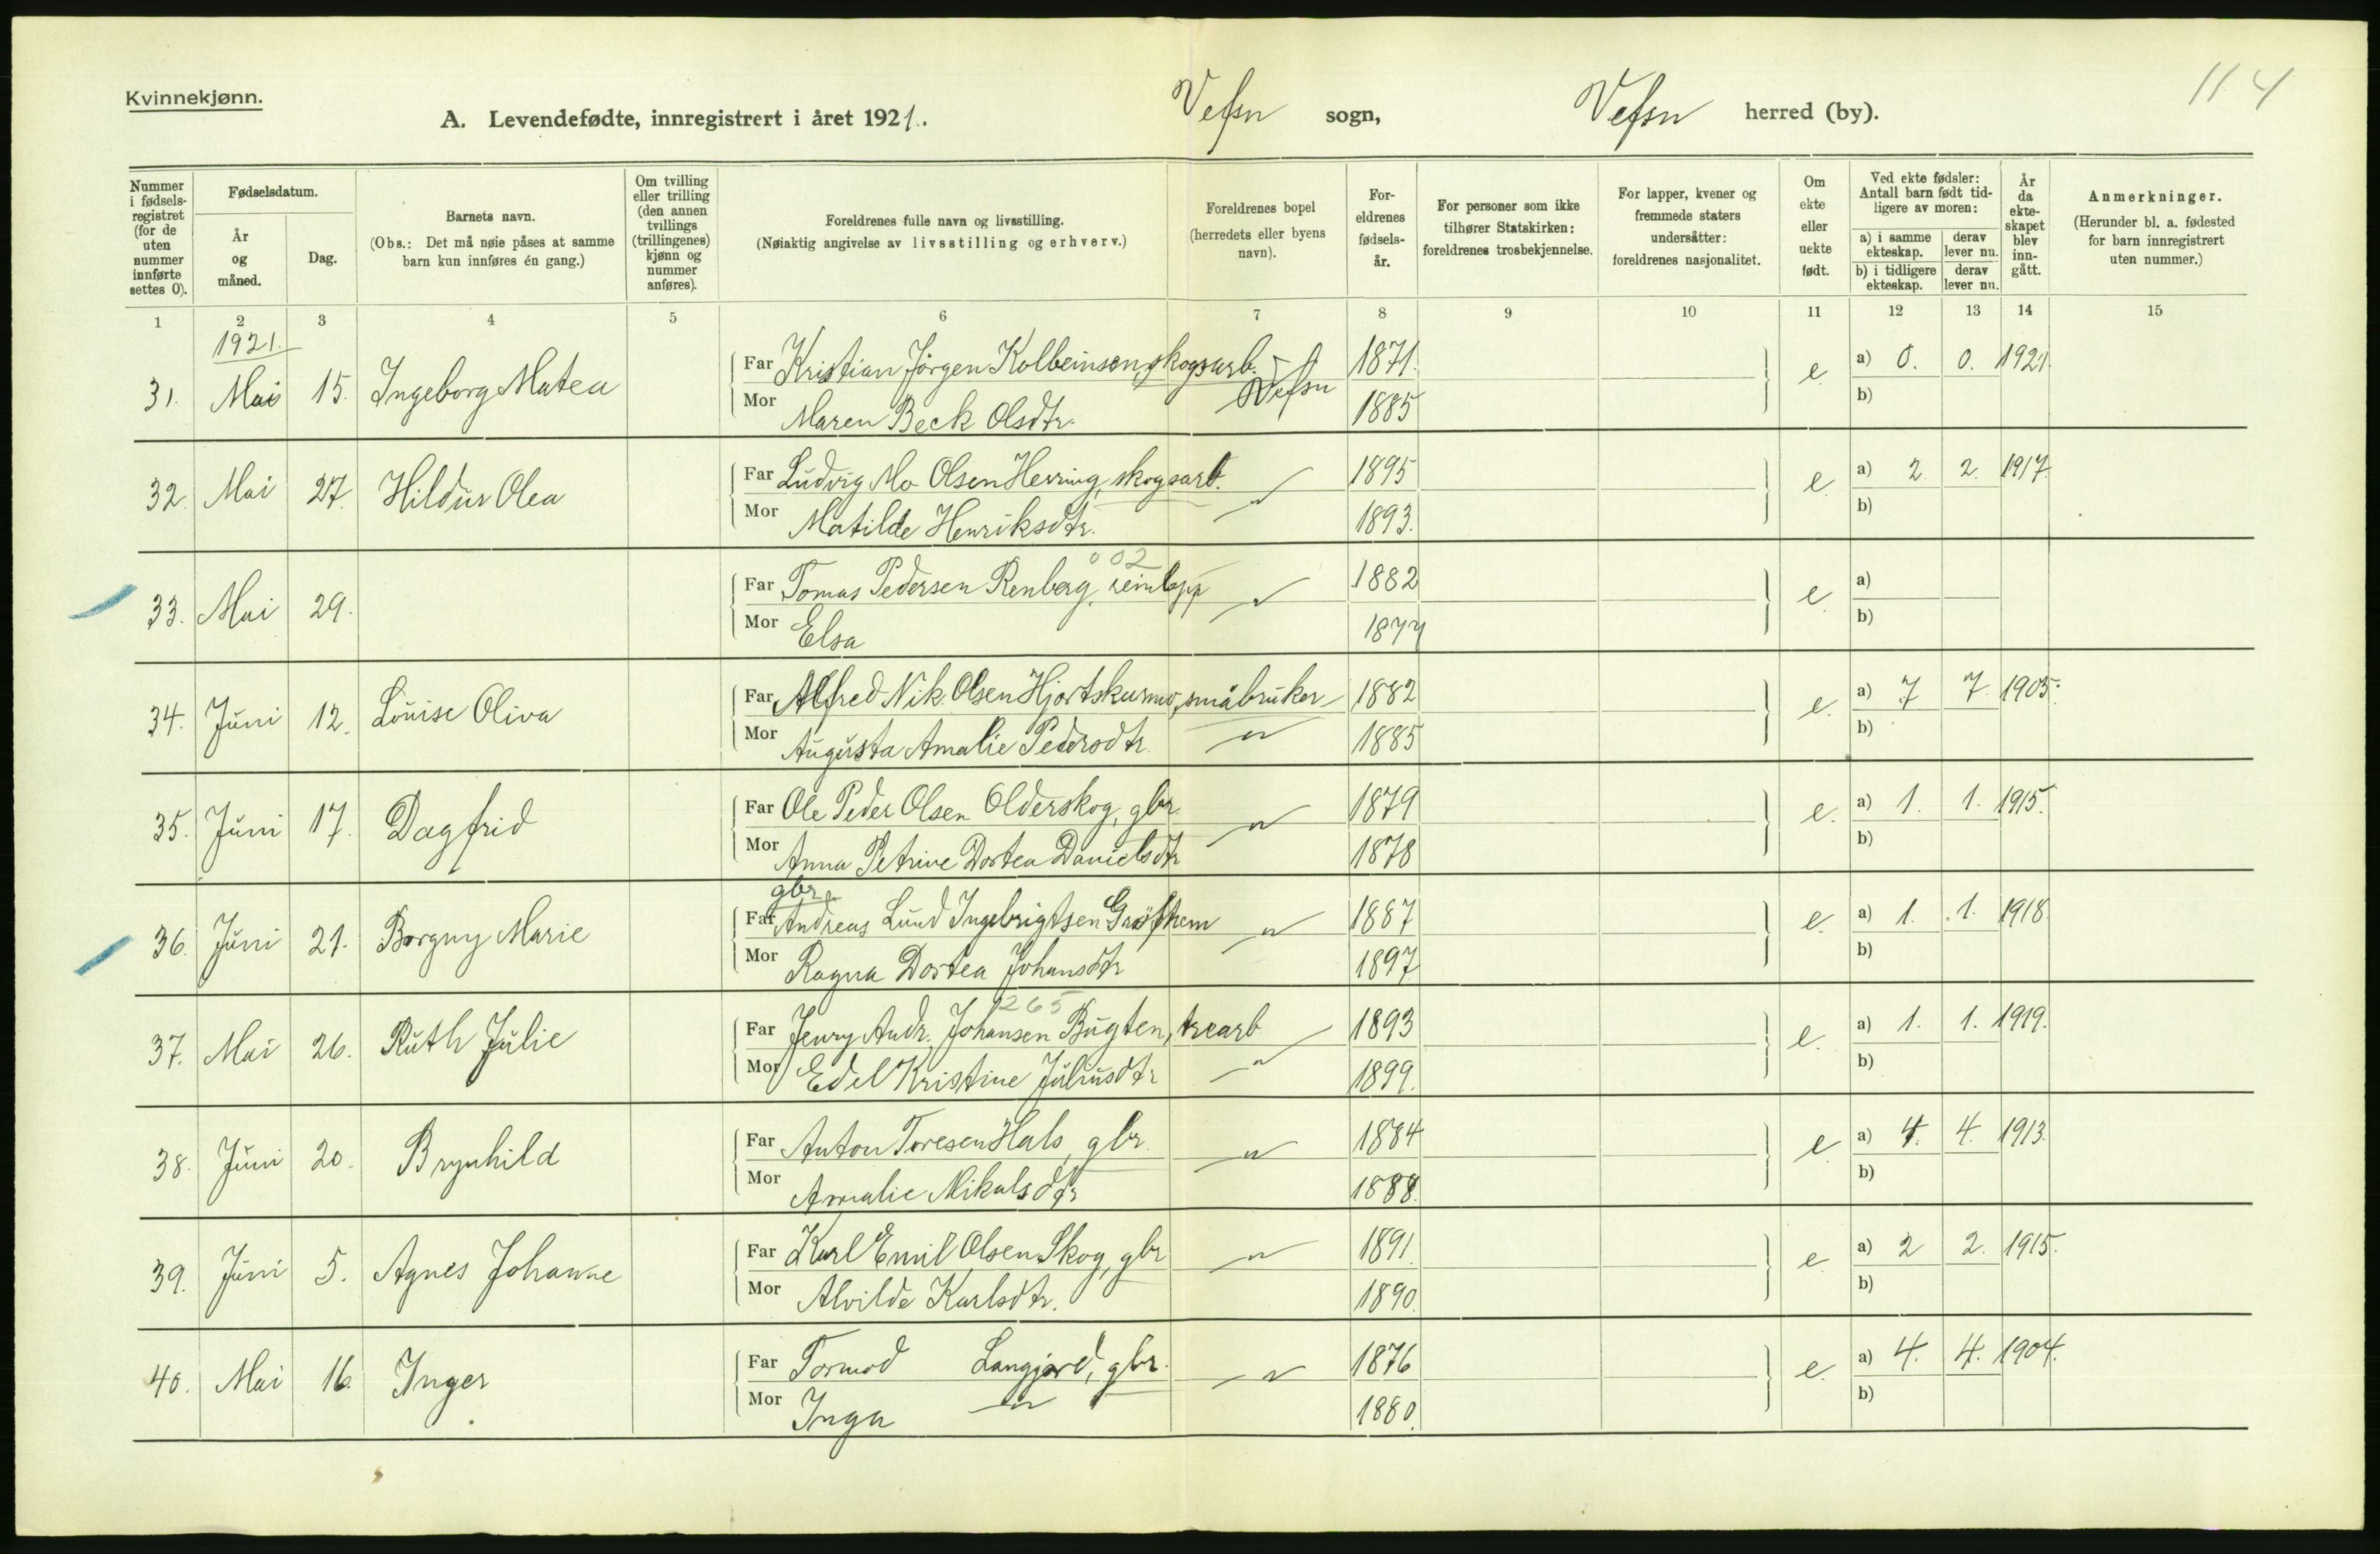 Kvinnekjønn.
A. Levendefødte, innregistrert i året 1921.
Vefsn sogn, Vefsn herred (by).
114
Nummer i fødselsregistret (for de uten nummer innførte settes 0).
Fødselsdatum.
År og måned.
Dag.
Barnets navn.
(Obs.: Det må nøie påses at samme barn kun innføres én gang.)
Om tvilling eller trilling (den annen tvillings (trillingenes) kjønn og nummer anføres).
Foreldrenes fulle navn og livsstilling.
(Nøiaktig angivelse av livsstilling og erhverv.)
Foreldrenes bopel (herredets eller byens navn).
Foreldrenes fødselsår.
For personer som ikke tilhører Statskirken: foreldrenes trosbekjennelse.
For lapper, kvener og fremmede staters undersåtter: foreldrenes nasjonalitet.
Om ekte eller uekte født.
Ved ekte fødsler: Antall barn født tidligere av moren:
a) i samme ekteskap. derav lever nu.
b) i tidligere ekteskap. derav lever nu.
År da ekteskapet blev inngått.
Anmerkninger.
(Herunder bl. a. fødested for barn innregistrert uten nummer.)
1 2 3 4 5 6 7 8 9 10 11 12 13 14 15
1921.
31. Mai 15. Ingeborg Matea Far Kristian Jörgen Kolbeinsen, skogsarb. Vefsn 1871. e. a) 0. 0. 1921.
Mor Maren Beck Olsdtr. 1885 b)
32. Mai 27. Hildur Olea Far Ludvig Mo Olsen Herring, skogsarb. — " — 1895 e. a) 2 2. 1917.
Mor Matilde Henriksdtr. 1893. b)
002
33. Mai 29. Far Tomas Pedersen Renberg, reinlapp — " — 1882 e. a)
Mor Elsa 1877 b)
34. Juni 12. Louise Oliva Far Alfred Nik. Olsen Hjortskurmo, småbruker 1882 e. a) 7 7. 1905.
Mor Augusta Amalie Pedersdtr. — " — 1885 b)
35. Juni 17. Dagfrid Far Ole Peder Olsen Olderskog, gbr. — " — 1879 e. a) 1. 1. 1915.
Mor Anna Petrine Dortea Danielsdtr 1878 b)
gbr.
36. Juni 21. Borgny Marie Far Andreas Lund Ingebrigtsen Gröfthem — " — 1887 e. a) 1. 1. 1918.
Mor Ragna Dortea Johansdtr 1897 b)
1265
37. Mai 26. Ruth Julie Far Jenry Andr. Johansen Bugten, trearb — " — 1893 e. a) 1. 1. 1919.
Mor Edel Kristine Juliusdtr 1899. b)
38. Juni 20. Brynhild Far Anton Toresen Hals, gbr. — " — 1884 e a) 4. 4. 1913.
Mor Amalie Nikalsdtr 1888. b)
39. Juni 5. Agnes Johanne Far Karl Emil Olsen Skog, gbr — " — 1891. e a) 2 2. 1915.
Mor Alvilde Karlsdtr. 1890. b)
40. Mai 16. Inger Far Tormod Langjord, gbr. — " — 1876 e. a) 4. 4. 1904.
Mor Inga — " — 1880. b)